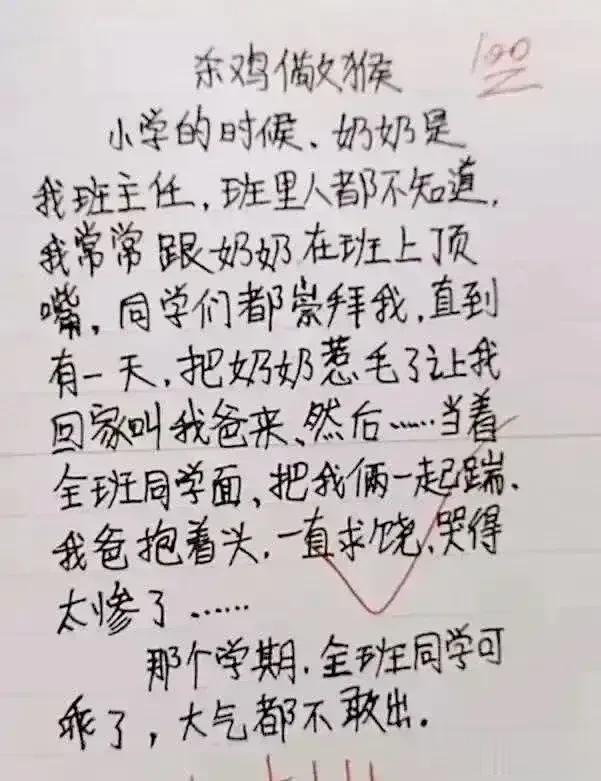 杀鸡儆猴
100
小学的时候、奶奶是
我班主任，班里人都不知道，
我常常跟奶奶在班上顶
嘴，同学们都崇拜我，直到
有一天，把奶奶惹毛了让我
回家叫我爸来、然后……当着
全班同学面、把我俩一起踹、
我爸抱着头，一直求饶，哭得
太惨了……
那个学期，全班同学可
乖了，大气都不敢出．